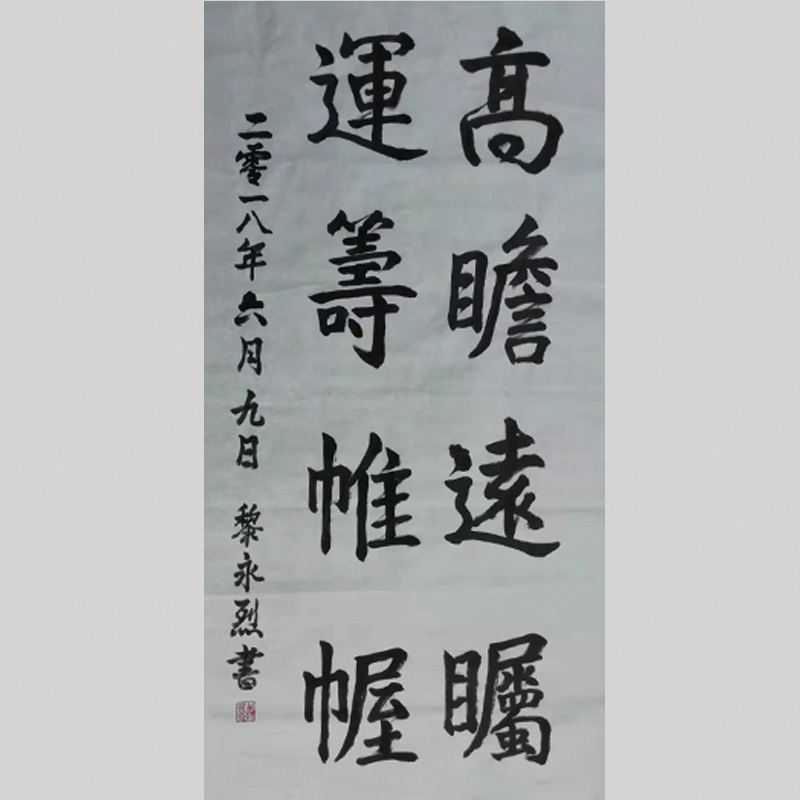 高瞻遠矚
運籌帷幄
二零一八年六月九日 黎永烈書